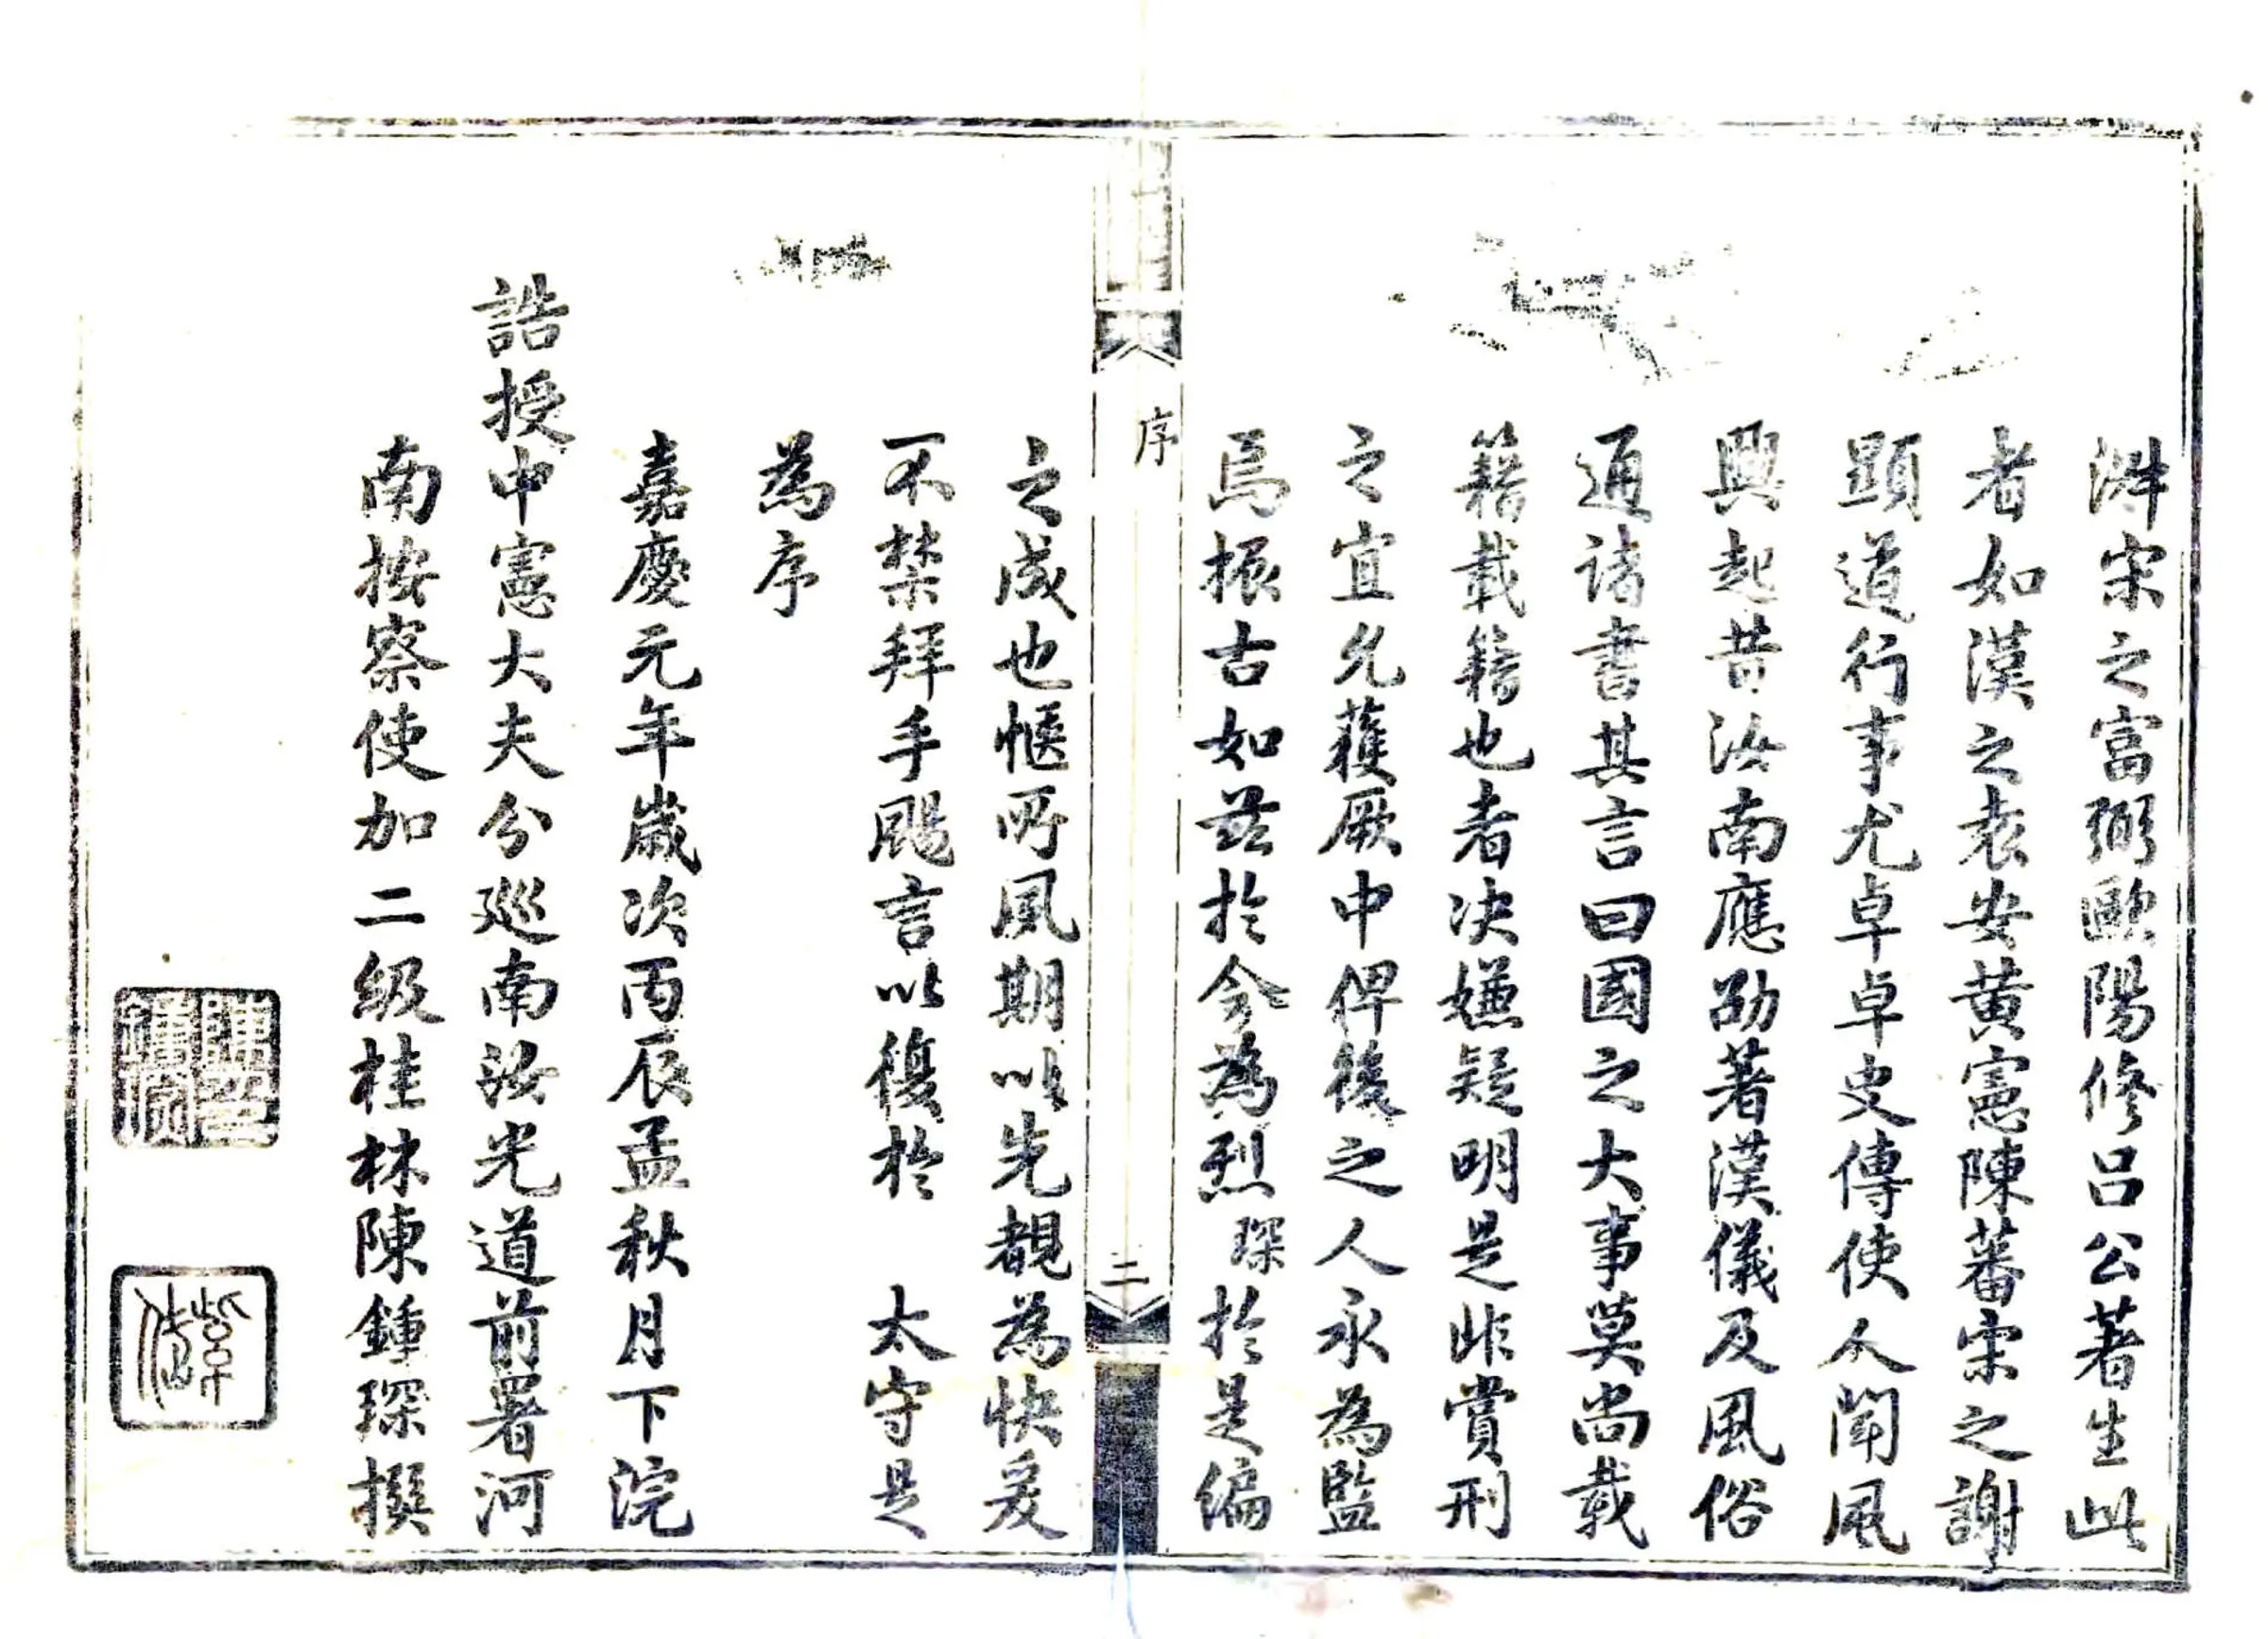 洴宋之富弼歐陽修呂公著生此
者如漢之袁安黃憲陳蕃宋之謝
顯道行事尤卓卓史傳使人聞風
興起昔汝南應劭著漢儀及風俗
通諸書其言曰國之大事莫尚載
籍載籍也者決嫌疑明是非賞刑
之宜允獲厥中俾後之人永為監
焉振古如茲於今為烈琛於是編
序
二
之成也愜所風期以先覩為快爰
不禁拜手颺言以復於 太守是
為序
嘉慶元年歲次丙辰孟秋月下浣
誥授中憲大夫分巡南汝光道前署河
南按察使加二級桂林陳鍾琛撰
陳印鍾琛